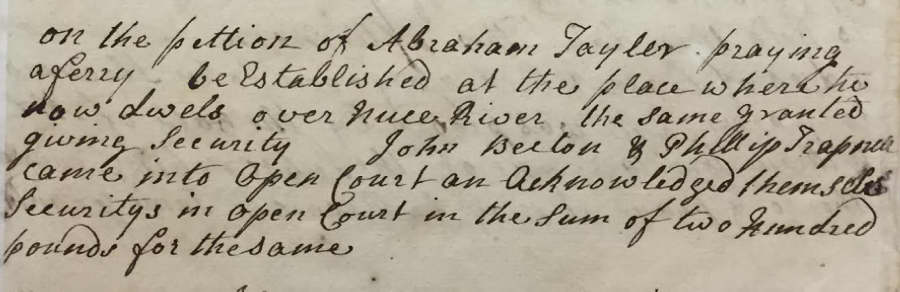 on the pettion of Abraham Tayler praying
a ferry be Established at the place where he
now dwels over Nuce River. the same granted
giving Security John Beeton & Phillip Trapnall
came into Open Court an Acknowledged themselves
Securitys in Open Court in the Sum of two Hundred
pounds for the same